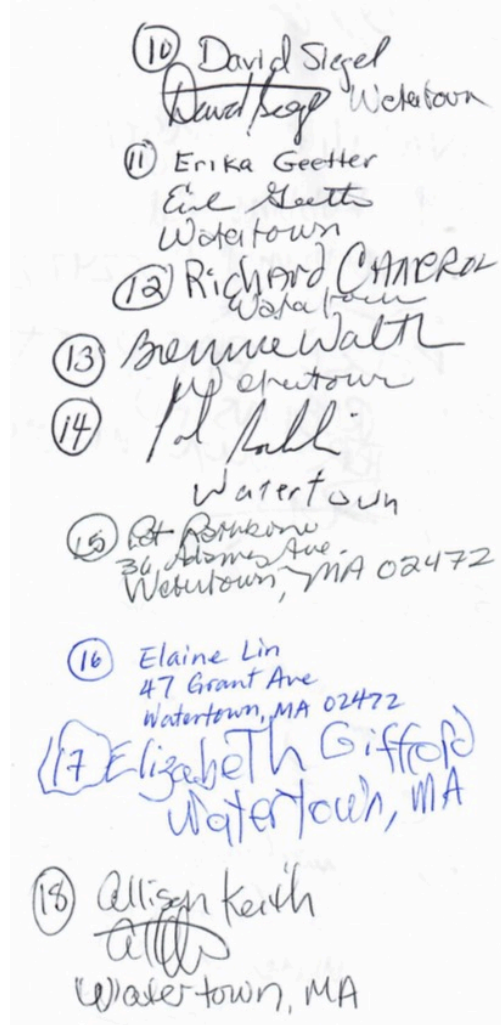 10 David Siegel
David Siegel Watertown
11 Erika Geetter
Watertown
12 Richard
Watertown
13
Watertown
14
Watertown
15 Pat
36 Adams Ave.
Watertown, MA 02472
16 Elaine Lin
47 Grant Ave
Watertown, MA 02472
17 Elizabeth Gifford
Watertown, MA
18 Allison Keith
Watertown, MA